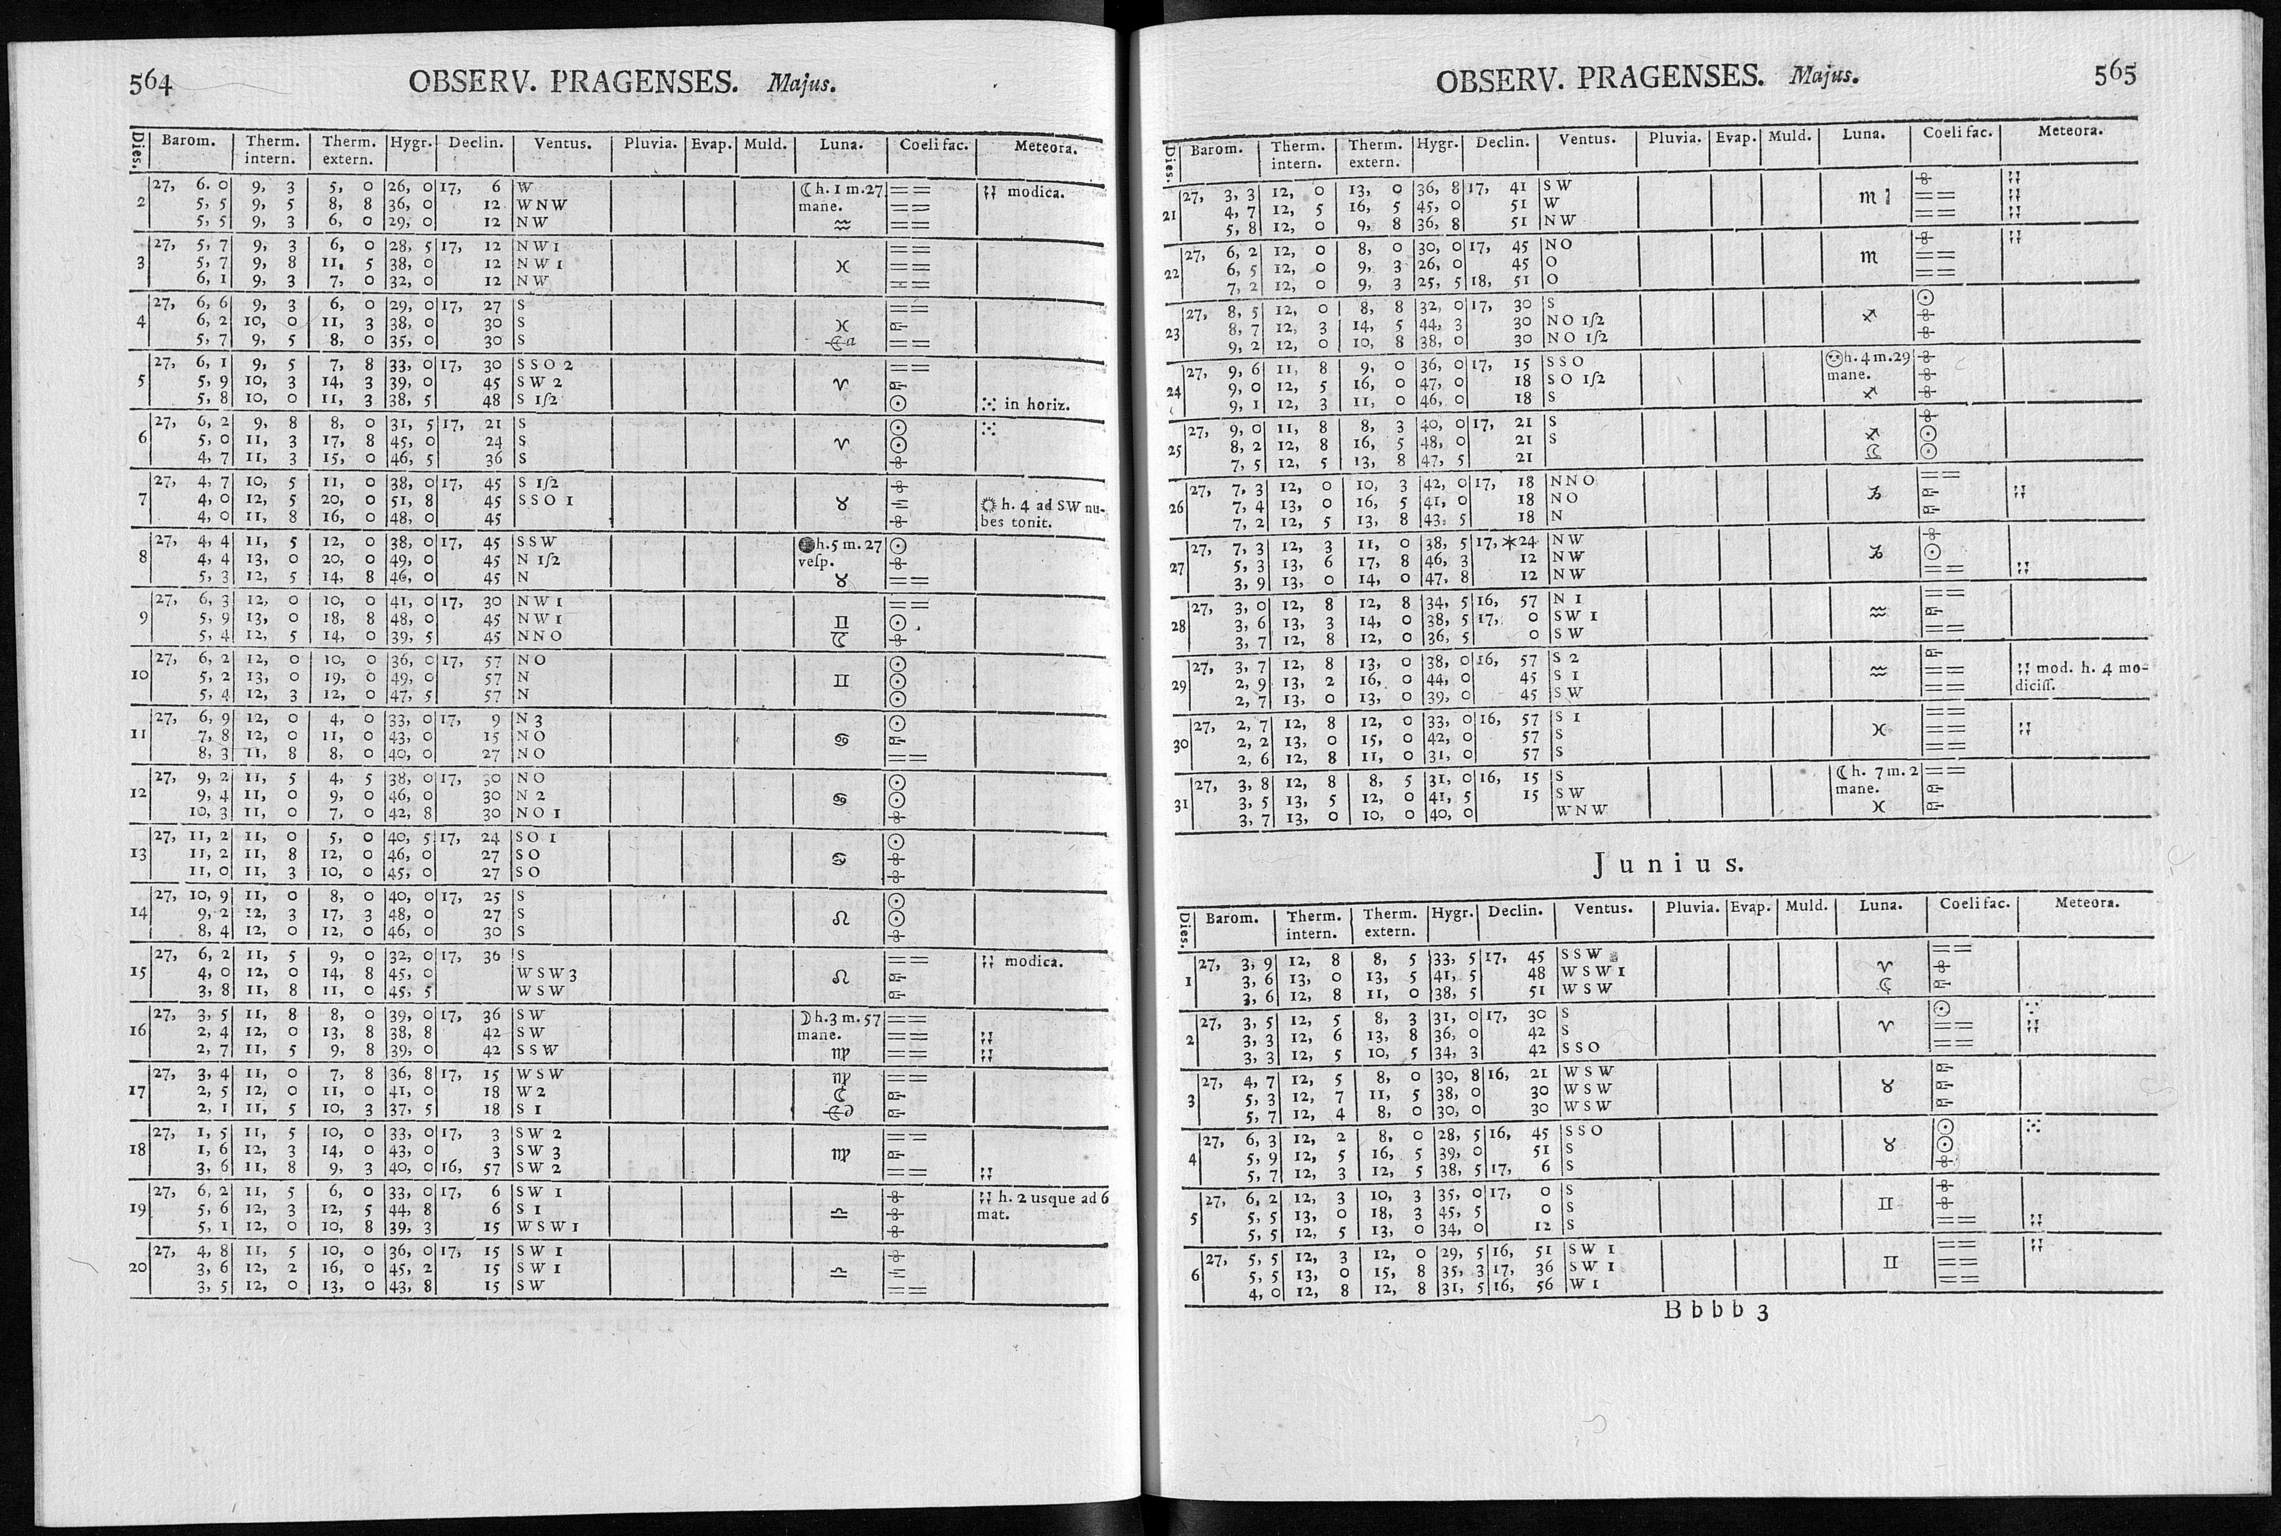 564 OBSERV. PRAGENSES. Majus.
Dies. Barom. Therm. intern. Therm. extern. Hygr. Declin. Ventus. Pluvia. Evap. Muld. Luna. Coeli fac. Meteora.
27, 6. 0 9, 3 5, 0 26, 0 17, 6 W ☾h. 1 m. 27 == ⁏⁏ modica.
2 5, 5 9, 5 8, 8 36, 0 12 WNW mane. ==
5, 5 9, 3 6, 0 29, 0 12 NW ♒ ==
27, 5, 7 9, 3 6, 0 28, 5 17, 12 NW 1 ==
3 5, 7 9, 8 11, 5 38, 0 12 NW 1 ♓ ==
6, 1 9, 3 7, 0 32, 0 12 NW ==
27, 6, 6 9, 3 6, 0 29, 0 17, 27 S ==
4 6, 2 10, 0 11, 3 38, 0 30 S ♓
5, 7 9, 5 8, 0 35, 0 30 S a ==
27, 6, 1 9, 5 7, 8 33, 0 17, 30 SSO 2 ==
5 5, 9 10, 3 14, 3 39, 0 45 SW 2 ♈
5, 8 10, 0 11, 3 38, 5 48 S 1ſ2 ☉ in horiz.
27, 6, 2 9, 8 8, 0 31, 5 17, 21 S ☉
6 5, 0 11, 3 17, 8 45, 0 24 S ♈ ☉
4, 7 11, 3 15, 0 46, 5 36 S
27, 4, 7 10, 5 11, 0 38, 0 17, 45 S 1ſ2
7 4, 0 12, 5 20, 0 51, 8 45 SSO 1 ♉ h. 4 ad SW nu-
4, 0 11, 8 16, 0 48, 0 45 bes tonit.
27, 4, 4 11, 5 12, 0 38, 0 17, 45 SSW ●h. 5 m. 27 ☉
8 4, 4 13, 0 20, 0 49, 0 45 N 1ſ2 veſp.
5, 3 12, 5 14, 8 46, 0 45 N ♉ ==
27, 6, 3 12, 0 10, 0 41, 0 17, 30 NW 1 ==
9 5, 9 13, 0 18, 8 48, 0 45 NW 1 ♊ ☉
5, 4 12, 5 14, 0 39, 5 45 NNO ☾
27, 6, 2 12, 0 10, 0 36, 0 17, 57 NO ☉
10 5, 2 13, 0 19, 0 49, 0 57 N ♊ ☉
5, 4 12, 3 12, 0 47, 5 57 N ☉
27, 6, 9 12, 0 4, 0 33, 0 17, 9 N 3 ☉
11 7, 8 12, 0 11, 0 43, 0 15 NO ♋
8, 3 11, 8 8, 0 40, 0 27 NO ==
27, 9, 2 11, 5 4, 5 38, 0 17, 30 NO ☉
12 9, 4 11, 0 9, 0 46, 0 30 N 2 ♋ ☉
10, 3 11, 0 7, 0 42, 8 30 NO 1
27, 11, 2 11, 0 5, 0 40, 5 17, 24 SO 1 ☉
13 11, 2 11, 8 12, 0 46, 0 27 SO ♋
11, 0 11, 3 10, 0 45, 0 27 SO
27, 10, 9 11, 0 8, 0 40, 0 17, 25 S ☉
14 9, 2 12, 3 17, 3 48, 0 27 S ♌ ☉
8, 4 12, 0 12, 0 46, 0 30 S
27, 6, 2 11, 5 9, 0 32, 0 17, 36 S == ⁏⁏ modica.
15 4, 0 12, 0 14, 8 45, 0 WSW 3 ♌
3, 8 11, 8 11, 0 45, 5 WSW
27, 3, 5 11, 8 8, 0 39, 0 17, 36 SW ☽h. 3 m. 57 ==
16 2, 4 12, 0 13, 8 38, 8 42 SW mane. == ⁏⁏
2, 7 11, 5 9, 8 39, 0 42 SSW ♍ == ⁏⁏
27, 3, 4 11, 0 7, 8 36, 8 17, 15 WSW ♍ ==
17 2, 5 12, 0 11, 0 41, 0 18 W 2 ☾
2, 1 11, 5 10, 3 37, 5 18 S 1
27, 1, 5 11, 5 10, 0 33, 0 17, 3 SW 2 ==
18 1, 6 12, 3 14, 0 43, 0 3 SW 3 ♍
3, 6 11, 8 9, 3 40, 0 16, 57 SW 2 == ⁏⁏
27, 6, 2 11, 5 6, 0 33, 0 17, 6 SW 1 ⁏⁏ h. 2 usque ad 6
19 5, 6 12, 3 12, 5 44, 8 6 S 1 ♎ mat.
5, 1 12, 0 10, 8 39, 3 15 WSW 1
27, 4, 8 11, 5 10, 0 36, 0 17, 15 SW 1
20 3, 6 12, 2 16, 0 45, 2 15 SW 1 ♎
3, 5 12, 0 13, 0 43, 8 15 SW ==
OBSERV. PRAGENSES. Majus. 565
Dies. Barom. Therm. intern. Therm. extern. Hygr. Declin. Ventus. Pluvia. Evap. Muld. Luna. Coeli fac. Meteora.
27, 3, 3 12, 0 13, 0 36, 8 17, 41 SW ⁏⁏
21 4, 7 12, 5 16, 5 45, 0 51 W ♏ == ⁏⁏
5, 8 12, 0 9, 8 36, 8 51 NW == ⁏⁏
27, 6, 2 12, 0 8, 0 30, 0 17, 45 NO ⁏⁏
22 6, 5 12, 0 9, 3 26, 0 45 O ♏ ==
7, 2 12, 0 9, 3 25, 5 18, 51 O ==
27, 8, 5 12, 0 8, 8 32, 0 17, 30 S ☉
23 8, 7 12, 3 14, 5 44, 3 30 NO 1ſ2 ♐
9, 2 12, 0 10, 8 38, 0 30 NO 1ſ2
27, 9, 6 11, 8 9, 0 36, 0 17, 15 SSO h. 4 m. 29
24 9, 0 12, 5 16, 0 47, 0 18 SO 1ſ2 mane.
9, 1 12, 3 11, 0 46, 0 18 S ♐
27, 9, 0 11, 8 8, 3 40, 0 17, 21 S
25 8, 2 12, 8 16, 5 48, 0 21 S ♐ ☉
7, 5 12, 5 13, 8 47, 5 21 ☾ ☉
27, 7, 3 12, 0 10, 3 42, 0 17, 18 NNO ==
26 7, 4 13, 0 16, 5 41, 0 18 NO ♑ ⁏⁏
7, 2 12, 5 13, 8 43, 5 18 N
27, 7, 3 12, 3 11, 0 38, 5 17, *24 NW
27 5, 3 13, 6 17, 8 46, 3 12 NW ♑ ☉
3, 9 13, 0 14, 0 47, 8 12 NW == ⁏⁏
27, 3, 0 12, 8 12, 8 34, 5 16, 57 N 1 ==
28 3, 6 13, 3 14, 0 38, 5 17, 0 SW 1 ♒
3, 7 12, 8 12, 0 36, 5 0 SW ==
27, 3, 7 12, 8 13, 0 38, 0 16, 57 S 2
29 2, 9 13, 2 16, 0 44, 0 45 S 1 ♒ == ⁏⁏ mod. h. 4 mo-
2, 7 13, 0 13, 0 39, 0 45 SW == diciſſ.
27, 2, 7 12, 8 12, 0 33, 0 16, 57 S 1 ==
30 2, 2 13, 0 15, 0 42, 0 57 S ♓ == ⁏⁏
2, 6 12, 8 11, 0 31, 0 57 S ==
27, 3, 8 12, 8 8, 5 31, 0 16, 15 S ☾h. 7 m. 2 ==
31 3, 5 13, 5 12, 0 41, 5 15 SW mane.
3, 7 13, 0 10, 0 40, 0 WNW ♓
Junius.
Dies. Barom. Therm. intern. Therm. extern. Hygr. Declin. Ventus. Pluvia. Evap. Muld. Luna. Coeli fac. Meteora.
27, 3, 9 12, 8 8, 5 33, 5 17, 45 SSW ==
1 3, 6 13, 0 13, 5 41, 5 48 WSW 1 ♈
3, 6 12, 8 11, 0 38, 5 51 WSW ☾
27, 3, 5 12, 5 8, 3 31, 0 17, 30 S ☉
2 3, 3 12, 6 13, 8 36, 0 42 S ♈ == ⁏⁏
3, 3 12, 5 10, 5 34, 3 42 SSO ==
27, 4, 7 12, 5 8, 0 30, 8 16, 21 WSW
3 5, 3 12, 7 11, 5 38, 0 30 WSW ♉
5, 7 12, 4 8, 0 30, 0 30 WSW
27, 6, 3 12, 2 8, 0 28, 5 16, 45 SSO ☉
4 5, 9 12, 5 16, 5 39, 0 51 S ♉ ☉
5, 7 12, 3 12, 5 38, 5 17, 6 S
27, 6, 2 12, 3 10, 3 35, 0 17, 0 S
5 5, 5 13, 0 18, 3 45, 5 0 S ♊
5, 5 12, 5 13, 0 34, 0 12 S == ⁏⁏
27, 5, 5 12, 3 12, 0 29, 5 16, 51 SW 1 == ⁏⁏
6 5, 5 13, 0 15, 8 35, 3 17, 36 SW 1 ♊ ==
4, 0 12, 8 12, 8 31, 5 16, 56 W 1 ==
Bbbb 3